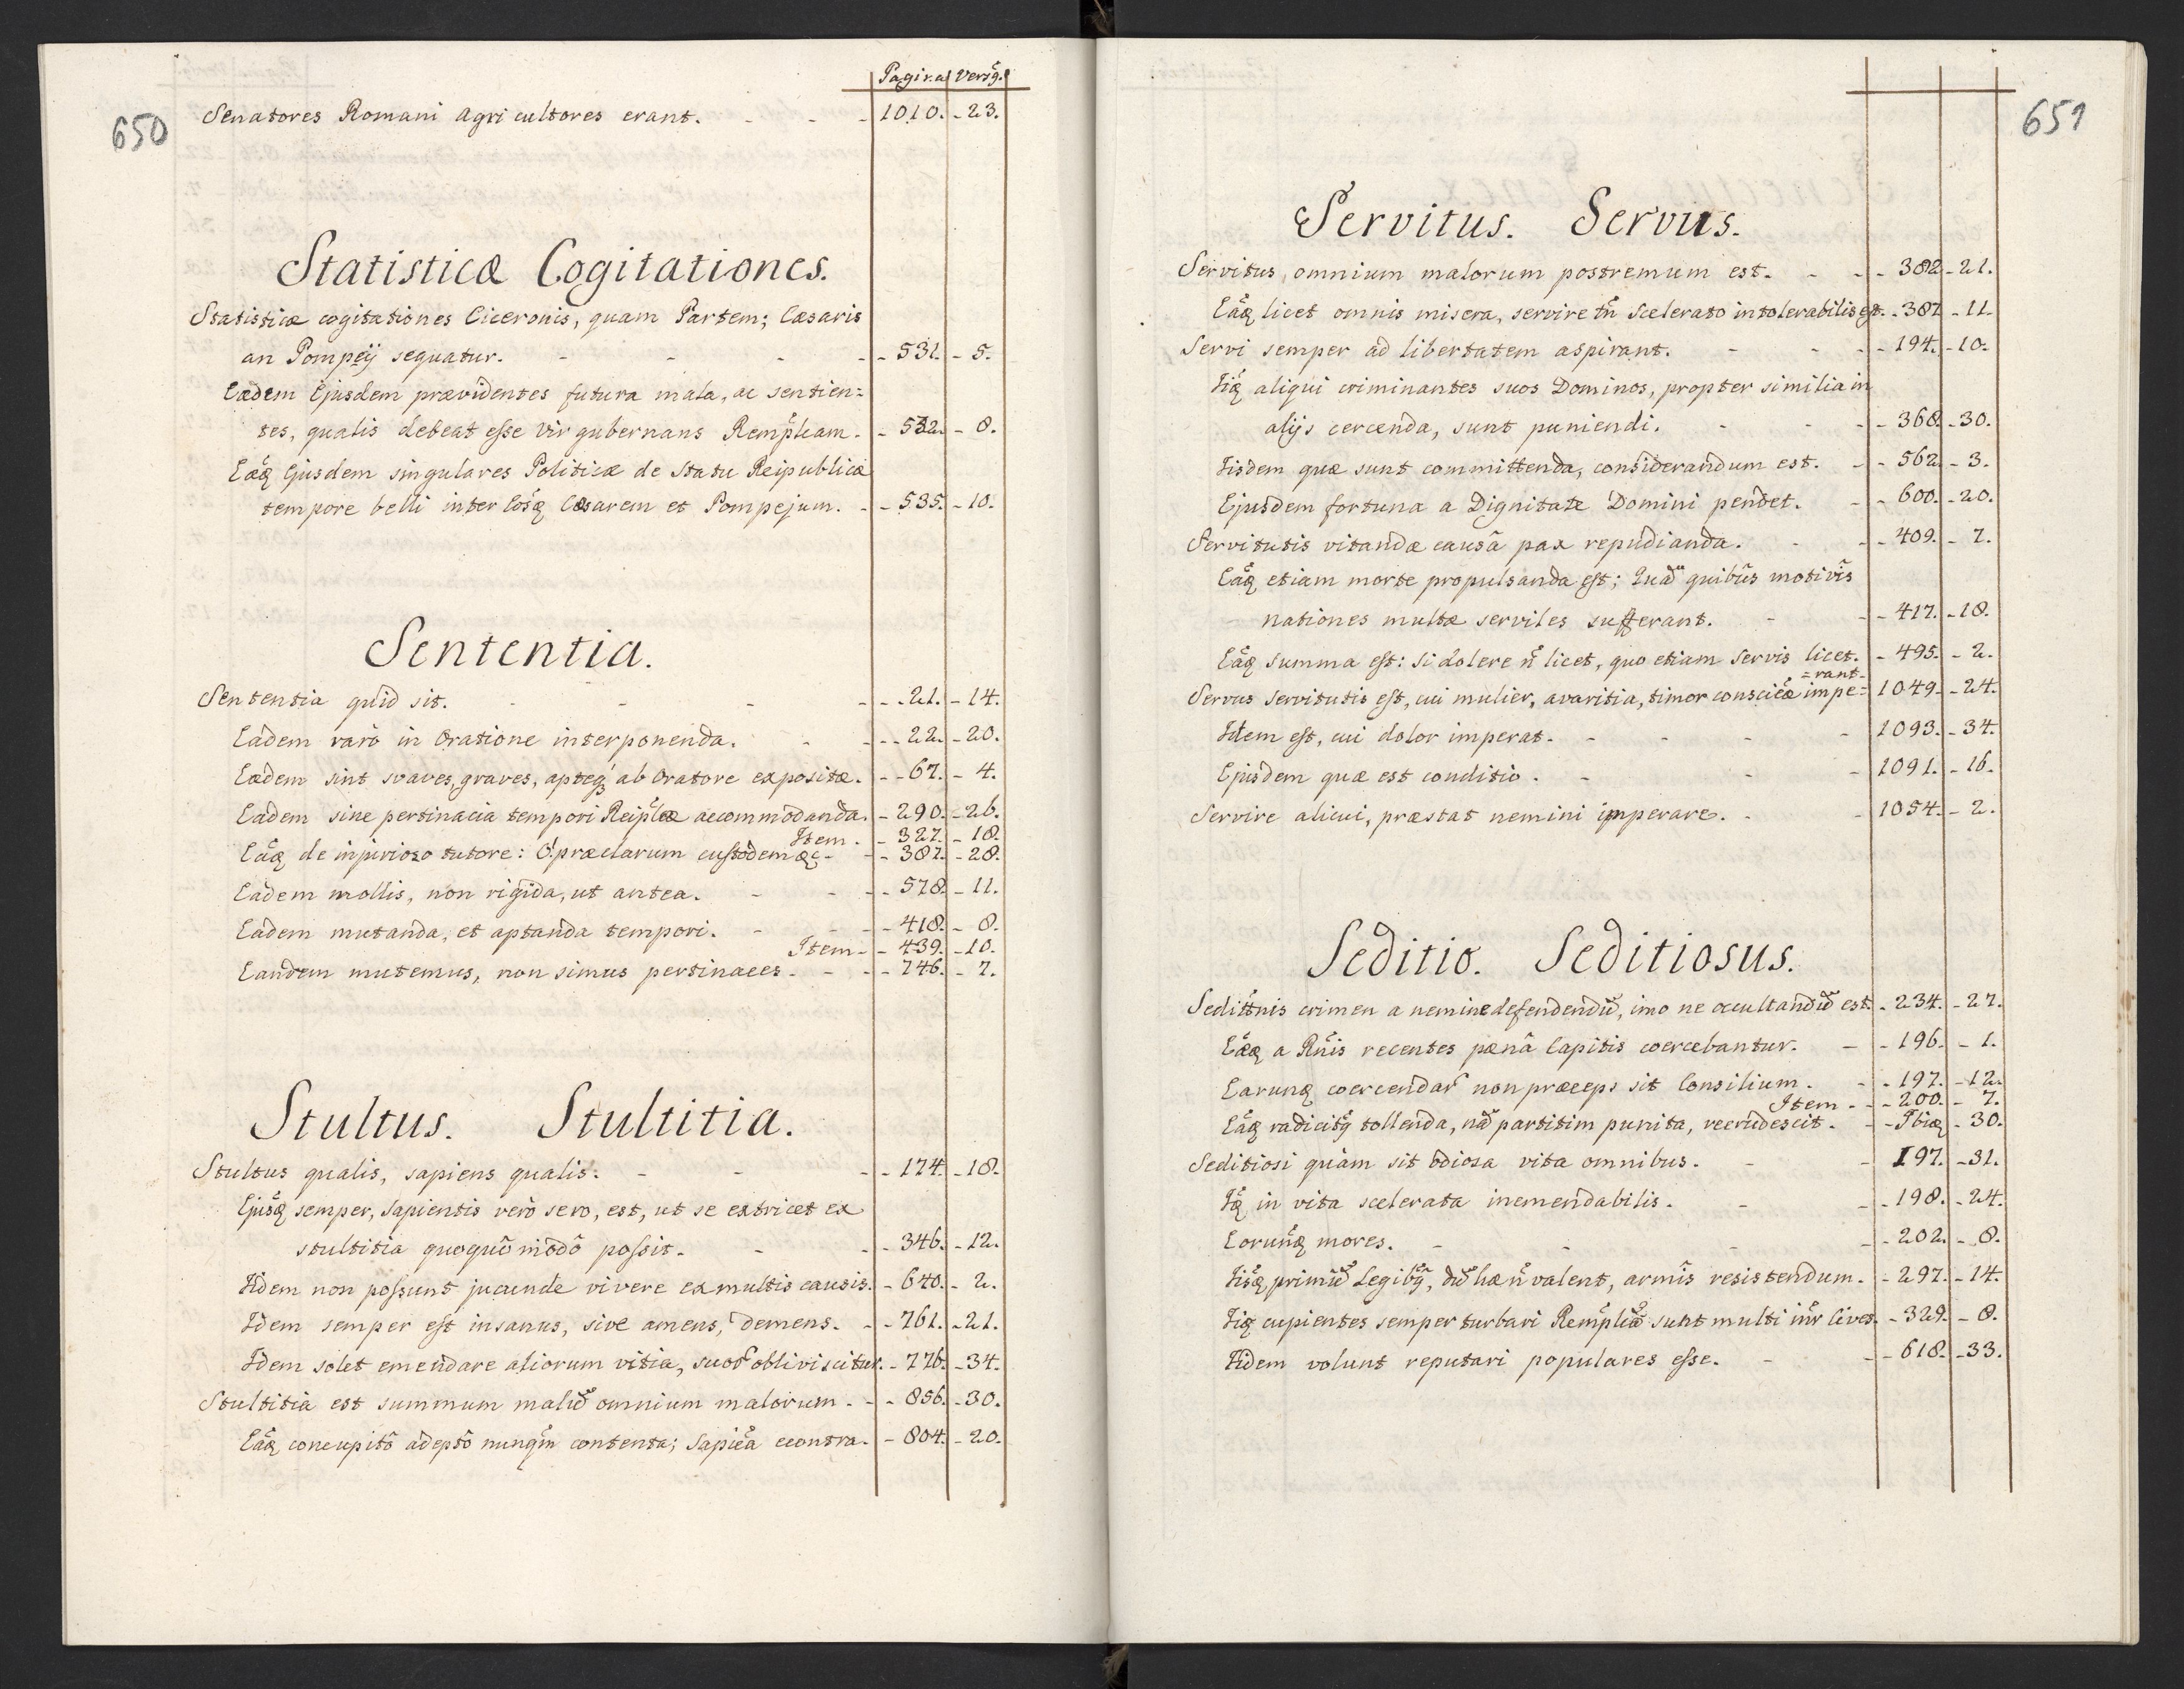 650
Pagina Versq.
Senatores Romani agri cultores erant. - - - 1010. - 23.
Statisticæ Cogitationes.
Statisticæ cogitationes Ciceronis, quam Partem; Cæsaris
an Pompeÿ sequatur. - - - - - 531. - 5.
Eædem Ejusdem prævidentes futura mala, ac sentien=
tes, qualis debeat esse Vir gubernans Rempĉam. - 532. - 8.
Eæq Ejusdem singulares Politicæ de Statu Reipublicæ
tempore belli inter Eosq Cæsarem et Pompejum. - - 535. - 10.
Sententia.
Sententia quid sit. - - - - - 21. - 14.
Eadem raro in Oratione interponenda. - - - - 22. - 20.
Eædem sint svaves, graves, apteq ab Oratore expositæ. - - 67. - 4.
Eadem sine pertinacia tempori Reiplcæ accommodanda. - 290. - 26.
Item. - 327. - 18.
Eaq de injurioso tutore: O! præclarum custodem &c - - 387. - 28.
Eadem mollis, non rigida, ut antea. - - - 578. - 11.
Eadem mutanda, et aptanda tempori. - - - 418. - 8.
Item - - 439. - 10.
Eandem mutemus, non simus pertinaces. - - - 746. - 7.
Stultus. Stultitia.
Stultus qualis, sapiens qualis. - - - - 174. - 18.
Ejusq semper, Sapientis vero sero, est, ut se extricet ex
stultitia quoquô môdô possit. - - - 346. - 12.
Iidem non possunt jucunde vivere ex multis causis. - 640. - 2.
Idem semper est insanus, sive amens, demens. - - 761. - 21.
Idem solet emendare aliorum vitia, suor obliviscitur. - 776. - 34.
Stultitia est summum malū omnium malorum. - - 856. - 30.
Eaq concupitô adeptô nunqm contenta; Sapica econtra. - 804. - 20.
651
Servitus. Servus.
Servitus, omnium malorum postremum est. - - - 382. - 21.
Eaq licet omnis misera, servire tn Scelerato intolerabilis est. - 387. - 11.
Servi semper ad libertatem aspirant. - - - - 194. - 10.
Iiq aliqui criminantes suos Dominos, propter similia in
alijs cercenda, sunt puniendi. - - - - 368. - 30.
Iisdem quæ sunt committenda, considerandum est. - - 562. - 3.
Ejusdem fortuna a Dignitate Domini pendet. - - 600. - 20.
Servitutis vitandæ causâ pax repudianda. - - - 409. - 7.
Eaq etiam morte propulsanda est; Quā quibus motivis
nationes multæ serviles sufferant. - - - 417. - 18.
Eaq summa est: si dolere n licet, quo etiam Servis licet. - 495. - 2.
=rant.
Servus servitutis est, cui mulier, avaritia, timor consciæ impe= 1049. - 24.
Idem est, cui dolor imperat. - - - - 1093. - 34.
Ejusdem quæ est conditio. - - - 1091. - 16.
Servire alicui, præstat nemini imperare. - - 1054. - 2.
Seditio. Seditiosus.
Seditnis crimen a nemine defendendū, imo ne occultandū est. - 234. - 27.
Eæq a Rnis recentes pœnâ Capitis coercebantur. - - 196. - 1.
Earunq coercendar non præceps sit Consilium. - - 197. - 12.
Item - - 200. - 7.
Eaq radicitq tollenda, nā partitim punita, recrudescit. - - Ibiq - 30.
Seditiosi quàm sit odiosa vita omnibus. - - 197. - 31.
Iq in vita scelerata inemendabilis. - - - 198. - 24.
Eorunq mores. - - - - - 202. - 8.
Iisq primū Legibq, dū hæ n valent, armîs resistendum. - 297. - 14.
Iiq cupientes semper turbari Remplicā sunt multi intr Cives. - 329. - 8.
Iidem volunt reputari populares esse. - - - 618. - 33.